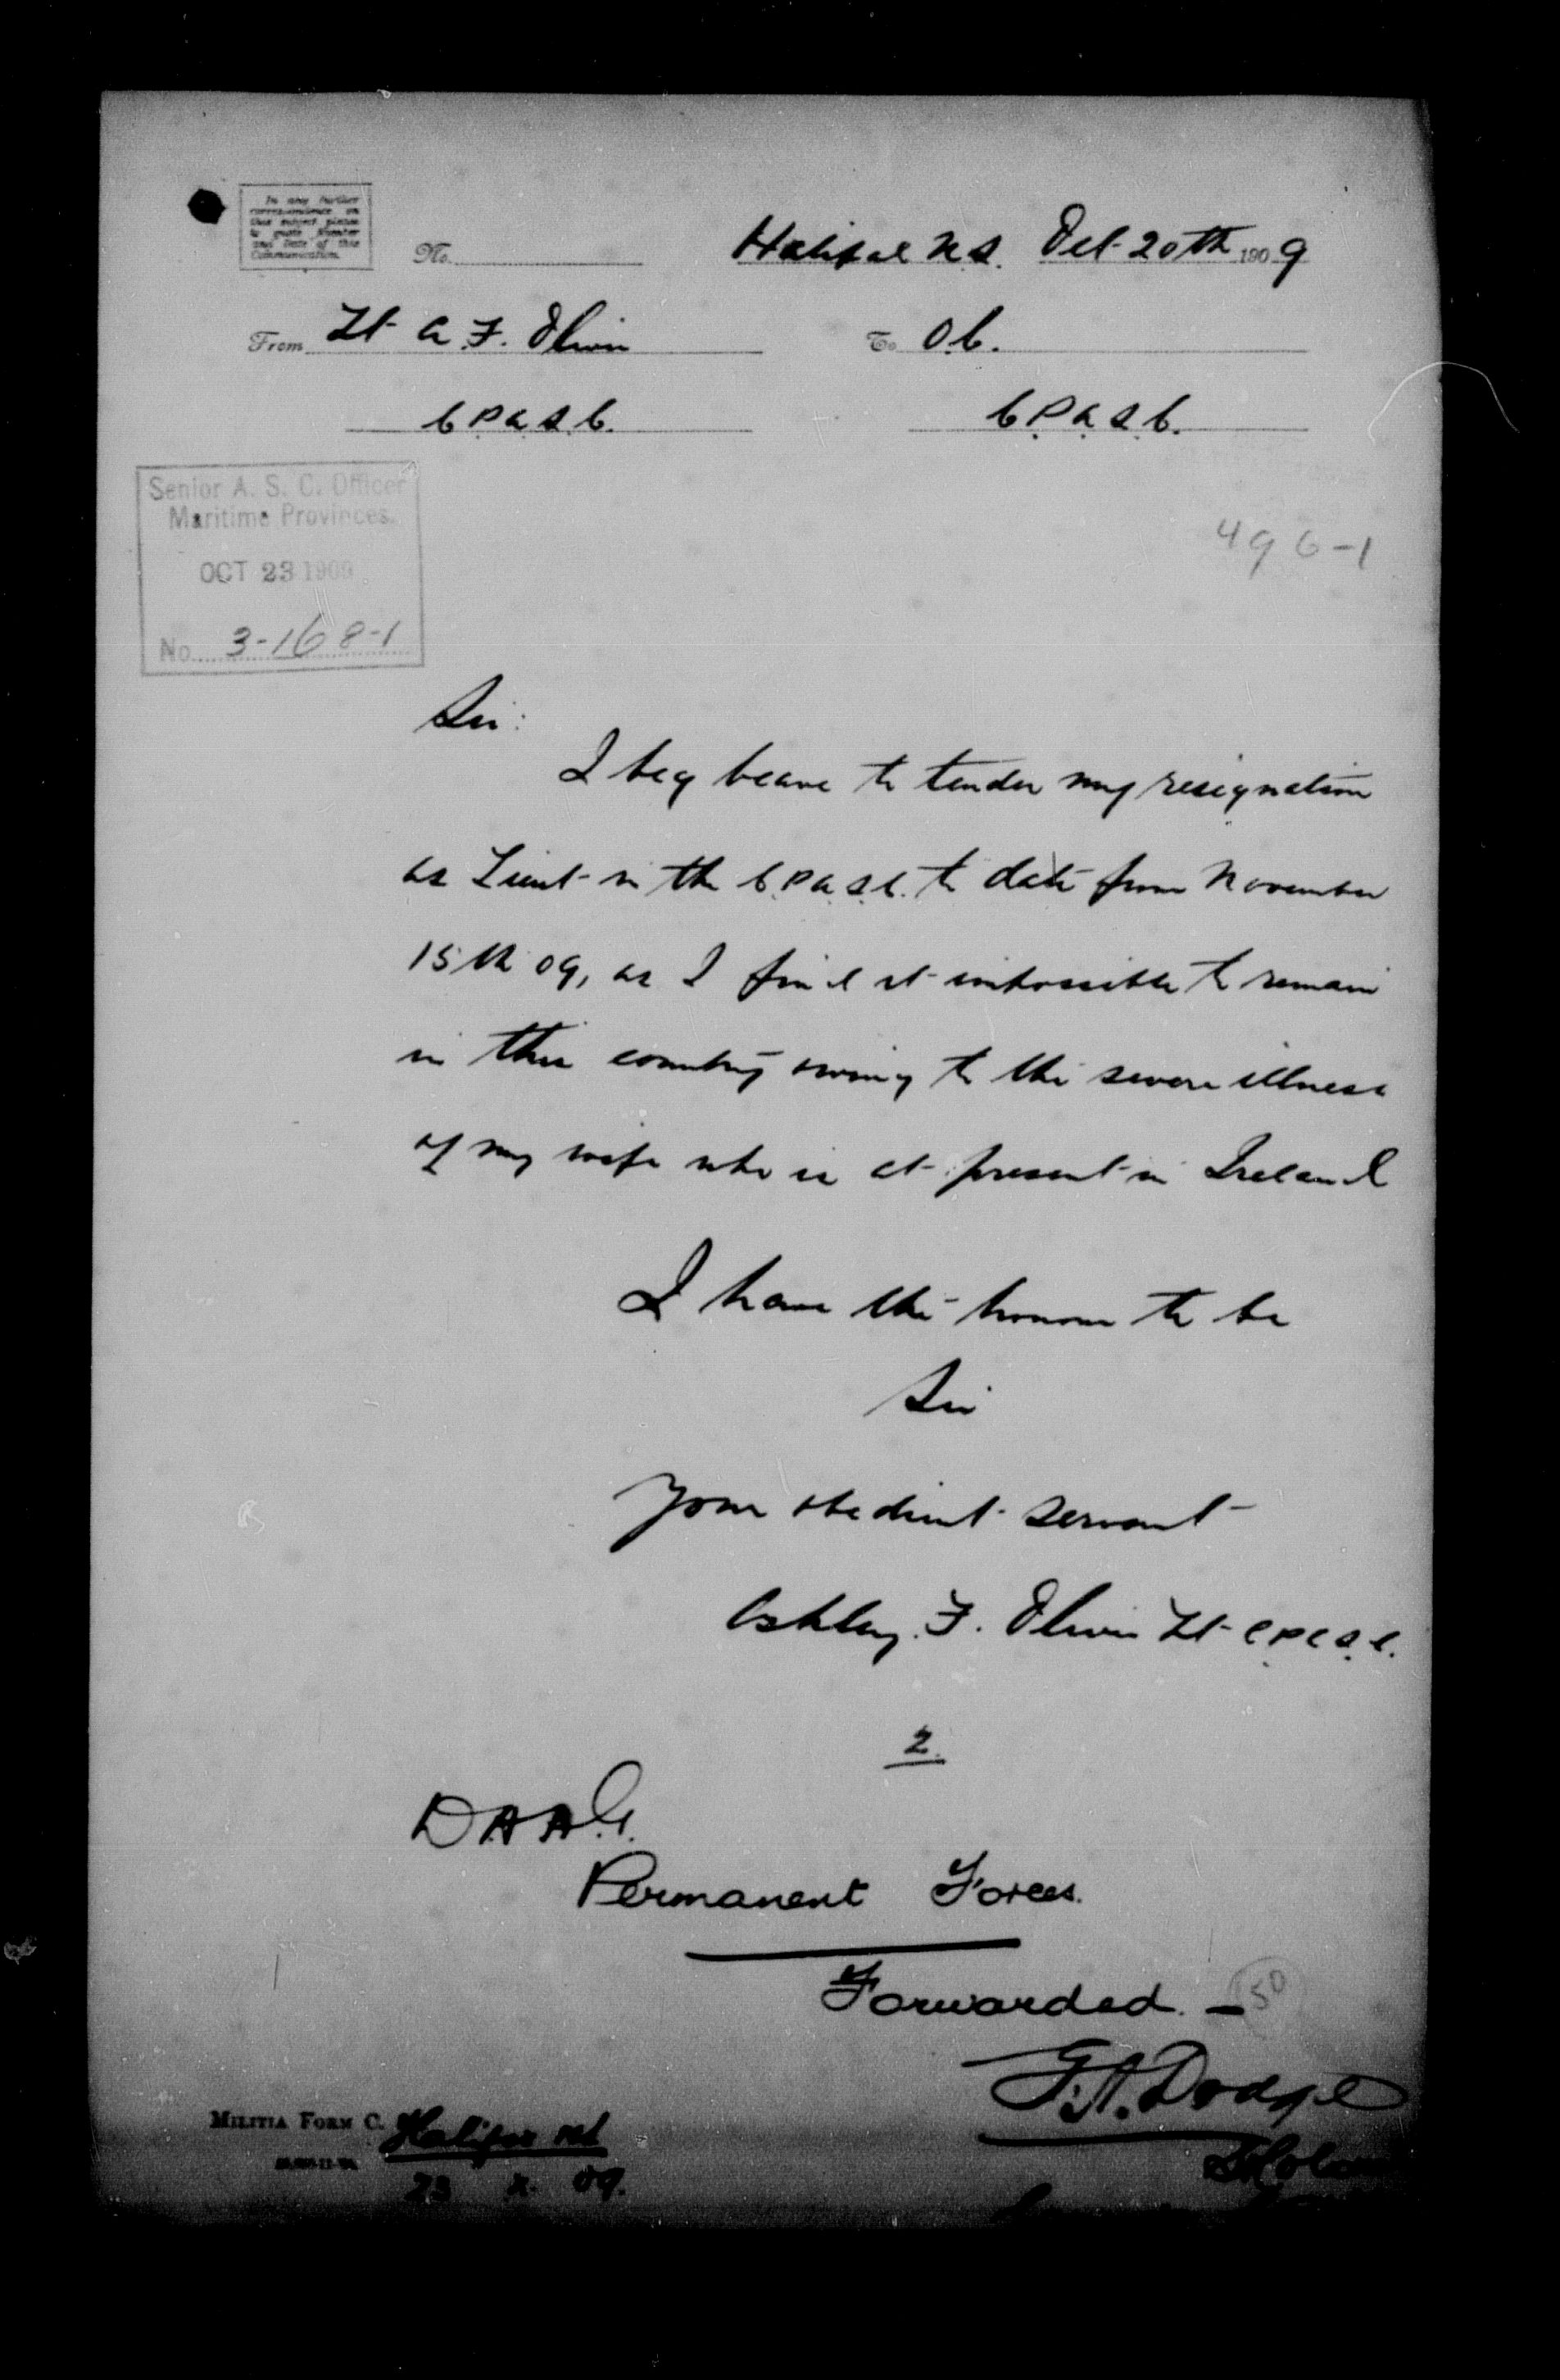 In any further
correspondence on
this subject please
to quote Number
and Date of this
Communication.
No.
Halifax N.S. Oct 20th 1909
From Lt A.F. Olwin
To O.C.
C.P.A.S.C.
C.P.A.S.C.
Senior A. S. C. Officer
Maritime Provinces.
OCT 23 1909
No. 3-168-1
496-1
Sir:
I beg leave to tender my resignation
as Lieut in the C.P.A.S.C. to date from November
15th 09, as I find it impossible to remain
in this country owing to the severe illness
of my wife who is at present in Ireland
I have the honour to be
Sir
Your obedient servant
Ashley F. Lt C.P.A.S.C.
2.
D.A.A.G.
Permanent Forces.
Forwarded. —
50
G.A. Dodge
MILITIA FORM C.
Halifax
23 X. 09.